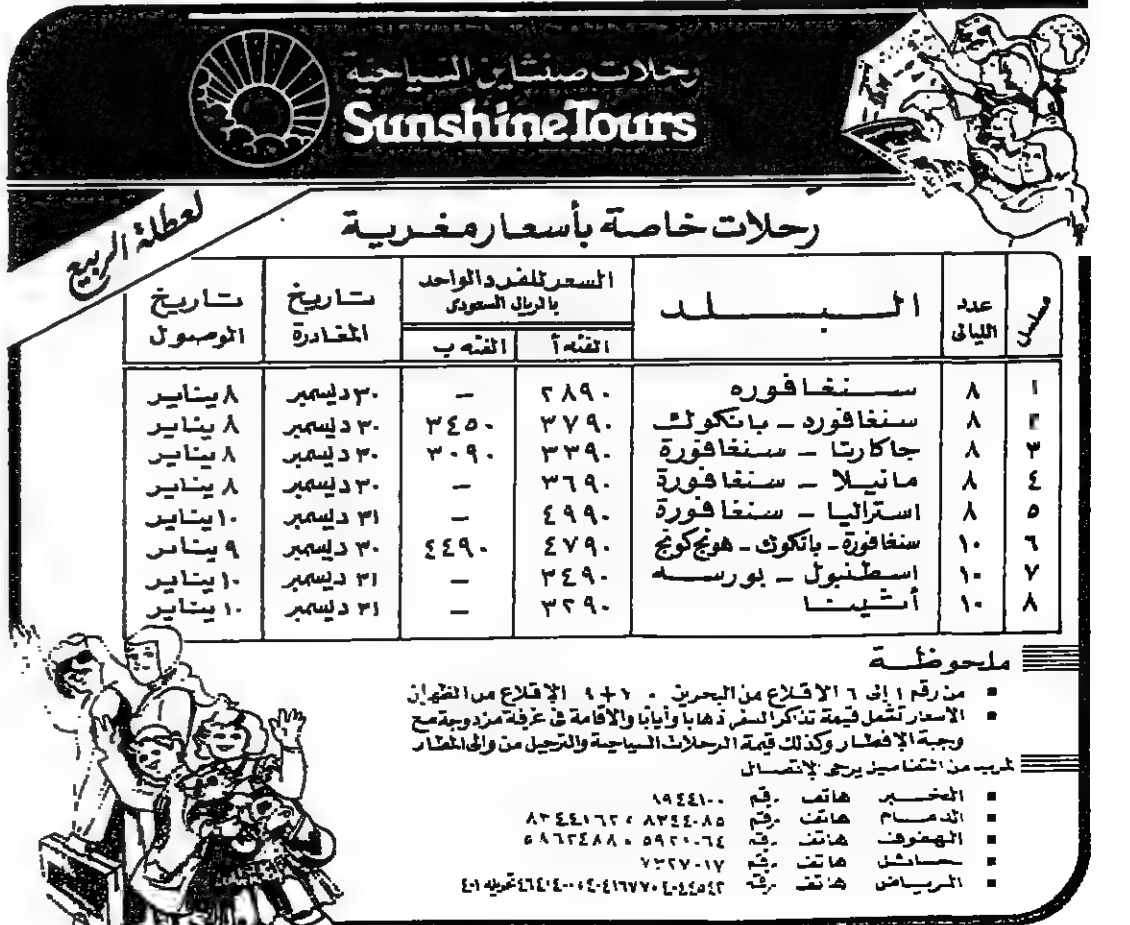 رحلات صنشاين السياحية
Sunshine Tours
لعطلة الربيع
رحلات خاصة بأسعار مغرية
مسلسل عدد الليالي البلد السعر للفرد الواحد بالريال السعودى تاريخ المغادرة تاريخ الوصول
الفئه أ الفئه ب
١ ٨ سنغافوره ٢٨٩٠ – ٣٠ ديسمبر ٨ يناير
٨ سنغافورة – بانكوك ٣٧٩٠ ٣٤٥٠ ٣٠ ديسمبر ٨ يناير
٣ ٨ جاكارتا – سنغافورة ٣٣٩٠ ٣٠٩٠ ٣٠ ديسمبر ٨ يناير
٤ ٨ مانيلا – سنغافورة ٣٦٩٠ – ٣٠ ديسمبر ٨ يناير
٥ ٨ استراليا – سنغافورة ٤٩٩٠ – ٣١ ديسمبر ١٠ يناير
٦ ١٠ سنغافورة – بانكوك – هونج كونج ٤٧٩٠ ٤٤٩٠ ٣٠ ديسمبر ٩ يناير
٧ ١٠ اسطنبول – بورسه ٣٤٩٠ – ٣١ ديسمبر ١٠ يناير
٨ ١٠ أثينا ٣٢٩٠ – ٣١ ديسمبر ١٠ يناير
ملحوظة
من رقم ١ إلى ٦ الاقلاع من البحرين الإقلاع من الظهران
الأسعار تشمل قيمة تذاكر السفر ذهابا وأيابا والاقامة فى غرفة مزدوجة مع
وجبة الإفطار وكذلك قيمة الرحلات السياحية والترحيل من والى المطار
لمزيد من التفاصيل يرجى الإتصال
الخبر هاتف رقم ٨٩٤٤١٠٠
الدمام هاتف رقم ٨٣٤٤٠٨٥ ، ٨٣٤٤١٦٢
الهفوف هاتف رقم ٥٩٢٠٠٦٤ ، ٥٨٦٢٤٨٨
حائل هاتف رقم
الرياض هاتف رقم تحويله ٤٠١